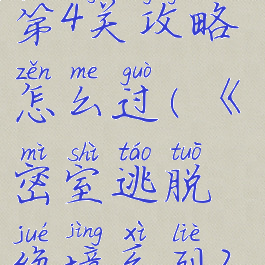 第4关攻略
zěn me guò
怎么过(《
mì shì táo tuō
密室逃脱
jué jìng xì liè
绝境系列2